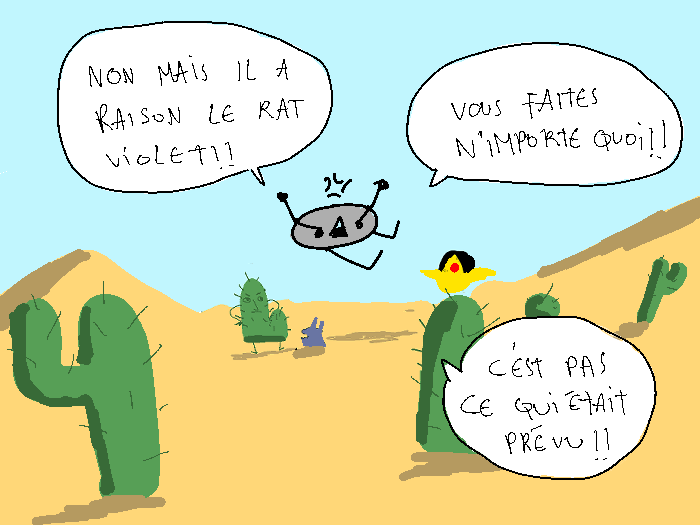 NON MAIS IL A
RAISON LE RAT
VIOLET!!
VOUS FAITES
N'IMPORTE QUOI!!
C'EST PAS
CE QUI ÉTAIT
PRÉVU!!